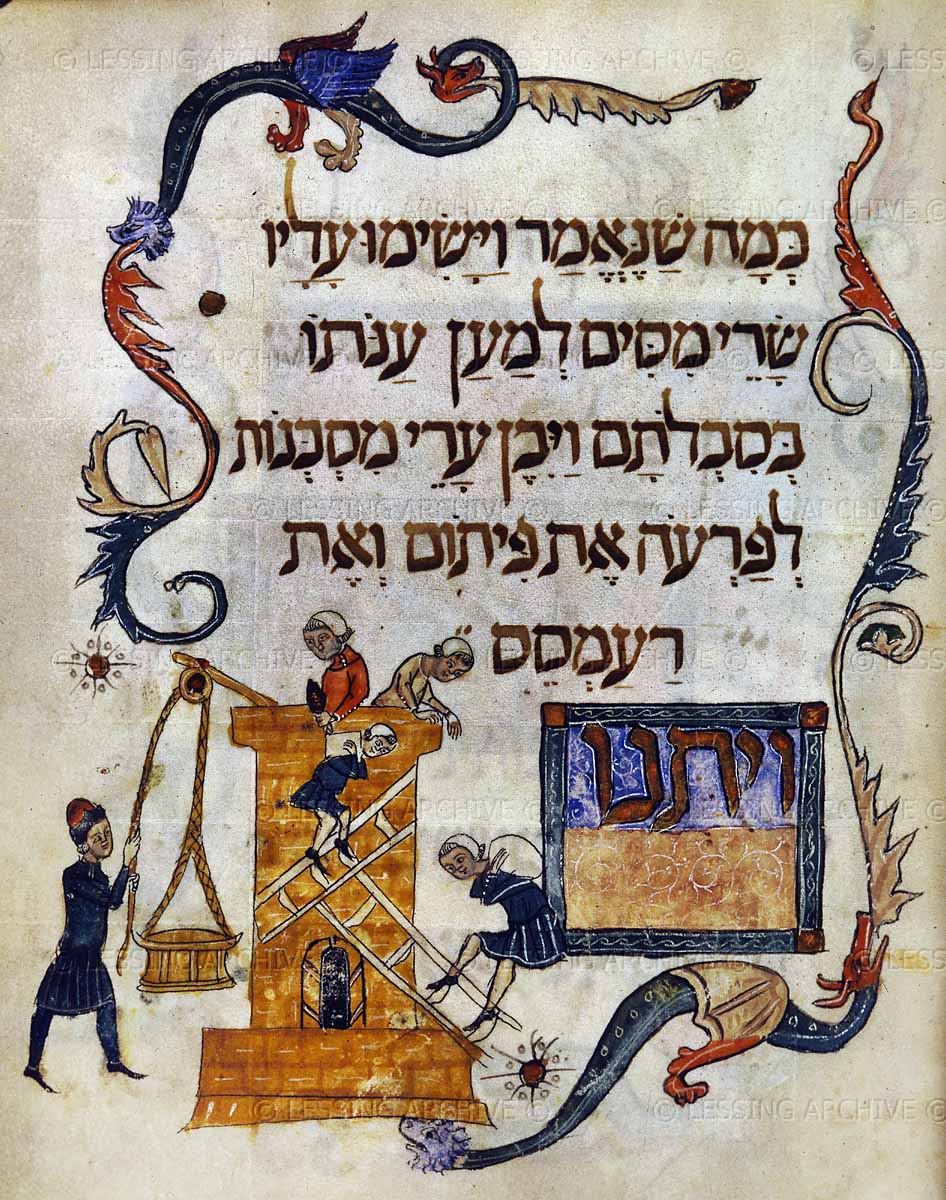 כְּמָה שֶׁנֶּאֱמַר וַיָּשִׂימוּ עָלָיו
שָׂרֵי מִסִּים לְמַעַן עַנֹּתוֹ
בְּסִבְלֹתָם וַיִּבֶן עָרֵי מִסְכְּנוֹת
לְפַרְעֹה אֶת פִּיתוֹם וְאֶת
רַעַמְסֵס
ויתנו
© LESSING ARCHIVE ©